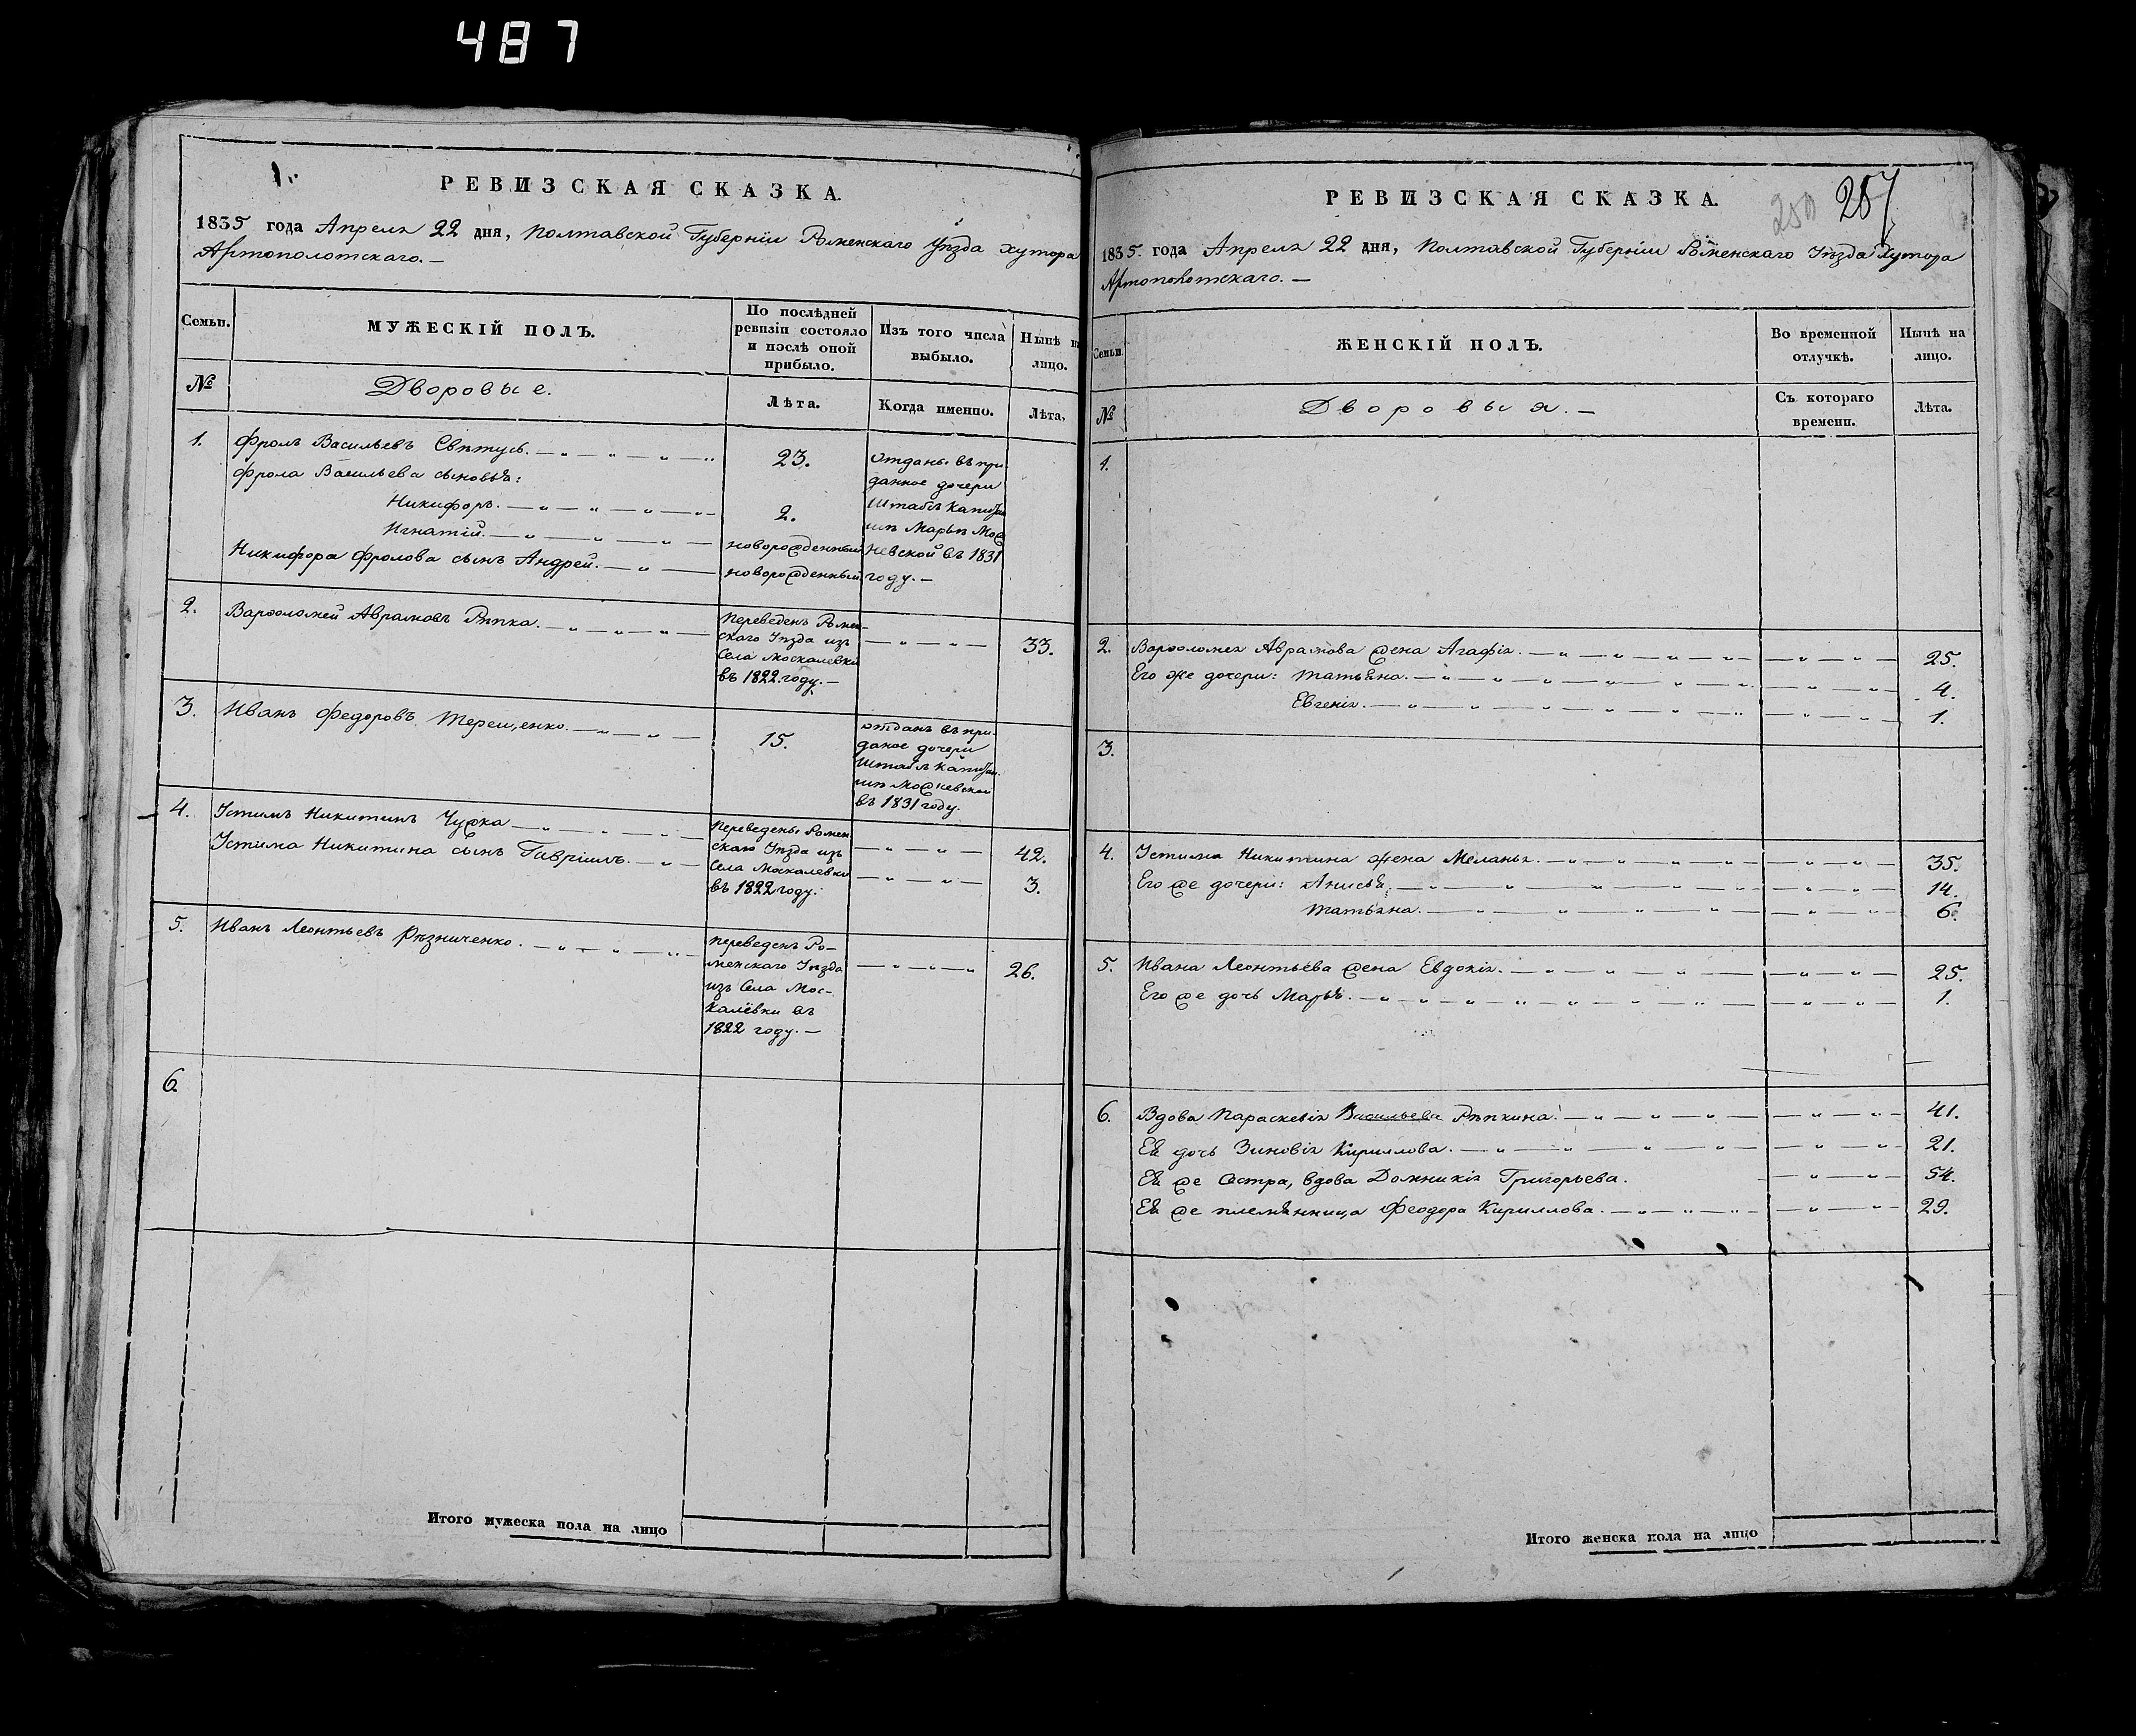 487
1.
РЕВИЗСКАЯ СКАЗКА.
1835 года Апреля 22 дня, Полтавской Губерніи Роменскаго Уѣзда хутора
Артополотскаго. —
Семьи.
МУЖЕСКІЙ ПОЛЪ.
По послѣдней
ревизіи состояло
и послѣ оной
прибыло.
Изъ того числа
выбыло.
Нынѣ на
лицо.
№
Дворовые.
Лѣта.
Когда именно.
Лѣта.
1.
Фролъ Васильевъ
23.
отданы въ при
Фрола Васильева сыновья:
данное дочери
Никифоръ.
2.
Штабсъ Капитан
Игнатій.
новорожденный
шѣ Марьѣ
Никифора Фролова сынъ Андрей.
новорожденный
въ 1831
году. —
2.
Варфоломей Аврамовъ Рѣпка.
Переведенъ Ромен-
скаго Уѣзда изъ
Села Москалевки
въ 1822 году. —
33.
3.
Иванъ Федоровъ Терещенко.
15.
отданъ въ при-
даное дочери
Штабсъ Капитан.
шѣ
въ 1831 году.
4.
Устимъ Никитинъ
Переведены Ромен
42.
Устима Никитина сынъ Гавріилъ.
скаго Уѣзда изъ
Села Москалевки
3.
въ 1822 году.
5.
Иванъ Леонтьевъ Рѣзниченко.
переведенъ Ро-
менскаго Уѣзда
изъ Села Мос-
калевки въ
1822 году. —
26.
6.
Итого мужеска пола на лицо
РЕВИЗСКАЯ СКАЗКА.
250
257
1835. года Апреля 22 дня, Полтавской Губерніи Роменскаго Уѣзда Хутора
Артополотскаго. —
Семьи.
ЖЕНСКІЙ ПОЛЪ.
Во временной
отлучкѣ.
Нынѣ на
лицо.
№
Дворовыя. —
Съ котораго
времени.
Лѣта.
1.
2.
Варфоломея Аврамова жена Агафія.
25.
Его же дочери: Татьяна.
4.
Евгенія.
1.
3.
4.
Устима Никитина жена Меланья.
35.
Его же дочери: Анисья.
14.
Татьяна.
6.
5.
Ивана Леонтьева жена Евдокія.
25.
Его же дочь Марья.
1.
6.
Вдова Параскевія Васильева Рѣпкина.
41.
Ея дочь Зиновія Кирилова.
21.
Ея же сестра, вдова Домникія Григорьева.
54.
Ея же племянница Феодора Кирилова.
29.
Итого женска пола на лицо